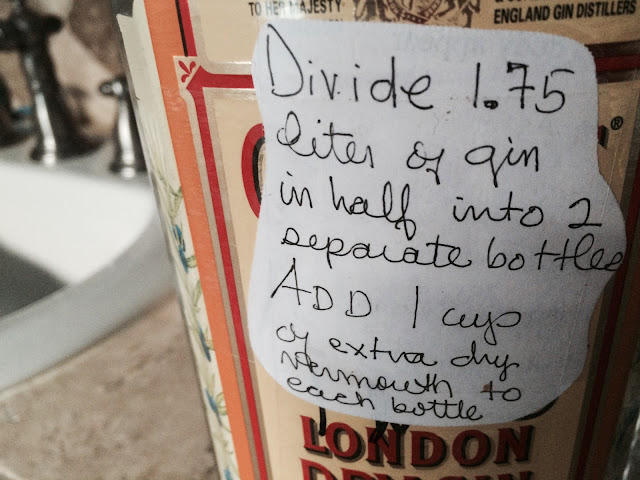 TO HER MAJESTY
ENGLAND GIN DISTILLERS
Divide 1.75
liter of gin
in half into 2
separate bottles
ADD 1 cup
of extra dry
vermouth to
each bottle
®
LONDON
DRY GIN